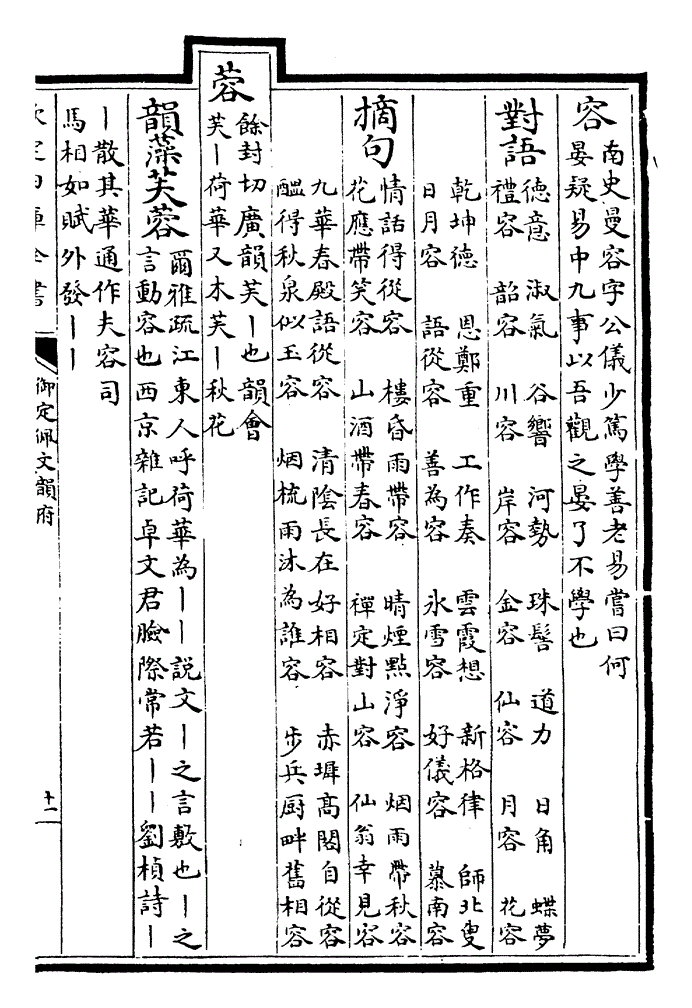 容
南史曼容字公儀少篤學善老易嘗曰何
晏疑易中九事以吾觀之晏了不學也
對語
德意 淑氣 谷響 河勢 珠髻 道力 日角 蝶夢
禮容 韶容 川容 岸容 金容 仙容 月容 花容
乾坤德 恩鄭重 工作奏 雲霞想 新格律 師北叟
日月容 語從容 善為容 氷雪容 好儀容 慕南容
摘句
情話得從容 樓昏雨帶容 晴煙㸃淨容 烟雨帶秋容
花應帶笑容 山酒帶春容 禪定對山容 仙翁幸見容
九華春殿語從容 清陰長在好相容 赤墀髙閣自從容
醖得秋泉似玉容 烟梳雨沐為誰容 步兵厨畔舊相容
蓉
餘封切廣韻芙丨也韻會
芙丨荷華又木芙丨秋花
韻藻芙蓉
爾雅疏江東人呼荷華為丨丨說文丨之言敷也丨之
言動容也西京雜記卓文君臉際常若丨丨劉楨詩丨
丨散其華通作夫容司
馬相如賦外發丨丨
欽定四庫全書
御定佩文韻府
十一